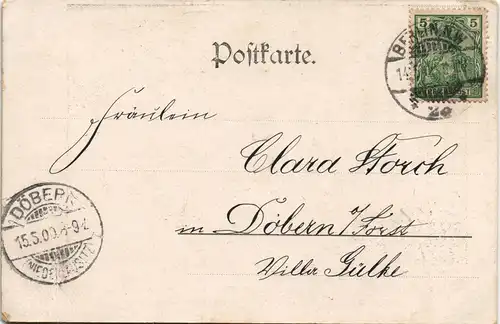 Postkarte.
5 5
BERLIN.N.W.
Fräulein
Clara Storch
in Döbern N/Forst
Villa Gülke
DÖBERN
15.5.00.8-9V.
(NIEDERLAUSITZ)